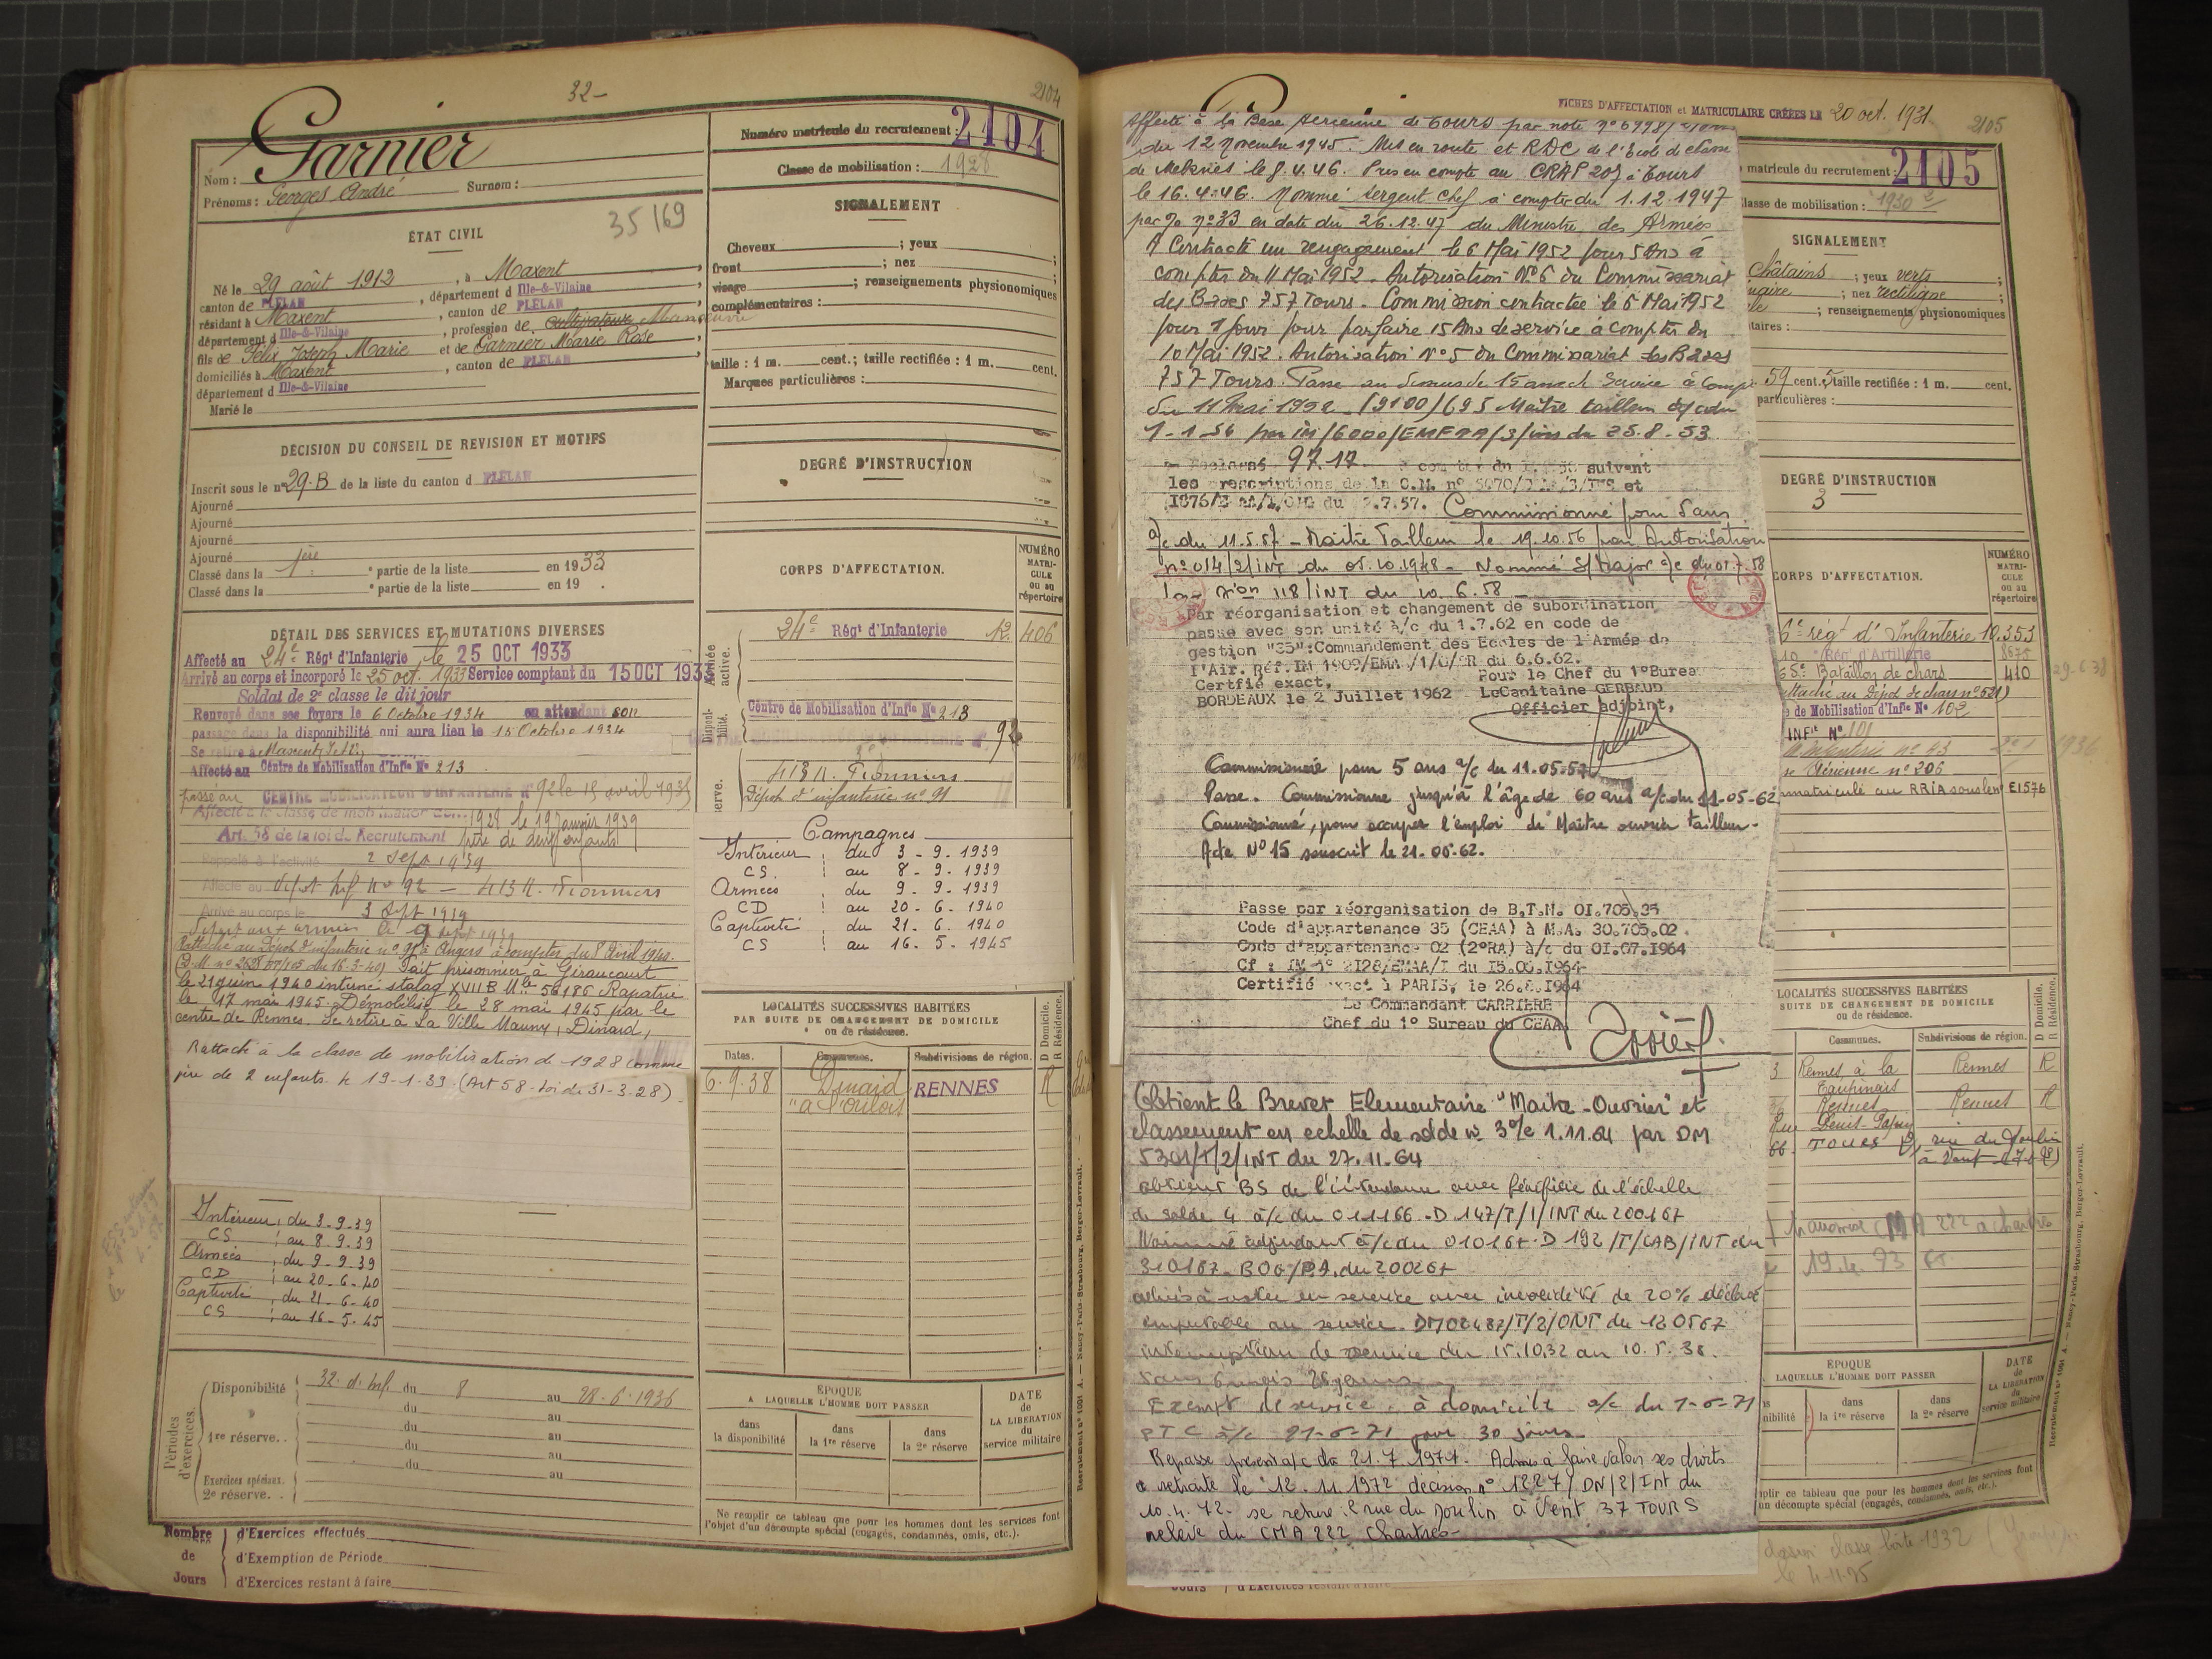 32-
2104
Garnier
Nom :
Prénoms : Georges André Surnom :
Numéro matricule du recrutement : 2104
Classe de mobilisation : 1928
35169
ÉTAT CIVIL
Né le 29 août 1912, à Maxent,
canton de PLÉLAN, département d Ille-&-Vilaine,
résidant à Maxent, canton de PLÉLAN,
département d Ille-&-Vilaine, profession de cultivateur Manœuvre
fils de Félix Joseph Marie et de Garnier Marie Rose
domiciliés à Maxent, canton de PLÉLAN
département d Ille-&-Vilaine
Marié le
DÉCISION DU CONSEIL DE REVISION ET MOTIFS
Inscrit sous le n° 29.B de la liste du canton d PLÉLAN
Ajourné
Ajourné
Ajourné
Ajourné
Classé dans la 1ère partie de la liste en 1933
Classé dans la e partie de la liste en 19 .
DÉTAIL DES SERVICES ET MUTATIONS DIVERSES
Affecté au 24e Régt d'Infanterie le 25 OCT 1933
Arrivé au corps et incorporé le 25 oct. 1933 Service comptant du 15 OCT 193
Soldat de 2e classe le dit jour
Renvoyé dans ses foyers le 6 Octobre 1934 en attendant son
passage dans la disponibilité qui aura lieu le 15 Octobre 1934
Se retire à Maxent
Affecté au Centre de Mobilisation d'Infie N° 213
passé au CENTRE MOBILISATEUR D'INFANTERIE N° 92 le 15 avril 1935
Affecté à la classe de mobilisation de 1928 le 19 Janvier 1939
Art. 58 de la loi de Recrutement père de deux enfants
Rappelé à l'activité 2 Sept 1939
Affecté au dépôt Inf. N° 92 - 413 R. Pionniers
Arrivé au corps le 3 Sept 1939
Départ aux armées le 9 Sept 1939
Rattaché au Dépôt d'infanterie n° 91 à Angers à compter du 8 Avril 1940.
Fait prisonnier à Giraucourt
le 21 juin 1940 interné stalag XVII B Mle 56186 Rapatrié
le 17 mai 1945. Démobilisé le 28 mai 1945 par le
centre de Rennes. Se retire à La Ville Mauny, Dinard,
Rattaché à la classe de mobilisation de 1928 comme
père de 2 enfants le 19-1-39 (Art 58 - loi du 31-3-28)
Intérieur, du 3-9-39
CS au 8-9-39
Armées du 9-9-39
CD au 20-6-40
Captivité du 21-6-40
CS au 16-5-45
Périodes d'exercices.
Disponibilité 32. d. Inf. du 8 au 28-6-1936
du au
1re réserve.. du au
du au
du au
Exercices spéciaux.
2e réserve. .
Nombre de Jours
d'Exercices effectués
d'Exemption de Période
d'Exercices restant à faire
SIGNALEMENT
Cheveux ; yeux ;
front ; nez ;
visage ; renseignements physionomiques
complémentaires :
taille : 1 m. cent.; taille rectifiée : 1 m. cent.
Marques particulières :
DEGRÉ D'INSTRUCTION
CORPS D'AFFECTATION.
NUMÉRO MATRICULE ou au répertoire
Armée active.
24e Régt d'Infanterie 12.406
Disponibilité.
Centre de Mobilisation d'Infie N° 213
92
413 R. Pionniers
Dépôt d'infanterie n° 91
Campagnes
Intérieur du 3 - 9 - 1939
CS. au 8 - 9 - 1939
Armées du 9 - 9 - 1939
CD au 20 - 6 - 1940
Captivité du 21 - 6 - 1940
CS au 16 - 5 - 1945
LOCALITÉS SUCCESSIVES HABITÉES
PAR SUITE DE CHANGEMENT DE DOMICILE
ou de résidence.
D Domicile. R Résidence.
Dates. Communes. Subdivisions de région.
6.9.38 Dinard RENNES R
ÉPOQUE
A LAQUELLE L'HOMME DOIT PASSER
DATE de LA LIBÉRATION du service militaire
dans la disponibilité
dans la 1re réserve
dans la 2e réserve
Ne remplir ce tableau que pour les hommes dont les services font
l'objet d'un décompte spécial (engagés, condamnés, omis, etc.).
FICHES D'AFFECTATION et MATRICULAIRE CRÉÉES LE 20 oct. 1931
2105
Affecté à la Base Aérienne de Tours par note n° 6998
du 12 Novembre 1945. Mis en route et RDC de l'école de chasse
de Meknès le 8.4.46. Pris en compte au CRAP 207 à Tours
le 16.4.46. Nommé sergent chef à compter du 1.12.1947
par % n° 33 en date du 26.12.47 du Ministre des Armées
A Contracté un rengagement le 6 Mai 1952 pour 5 Ans à
compter du 11 Mai 1952. Autorisation N° 6 du Commissariat
des Bases 757 Tours. Commission contractée le 6 Mai 1952
pour 1 jour pour parfaire 15 Ans de service à compter du
10 Mai 1952. Autorisation N° 5 du Commissariat des Bases
757 Tours. Passe au dessus de 15 ans de Service à comp
du 11 Mai 1952
1-1-54 du 25.8.53
97.17 suivant
les prescriptions de la C.M.
Commissionné pour 5 ans
a/c du 11.5.57 - Maître Tailleur le 19.10.56 par Autorisation
n° 014/2/INT du 05.10.1948 - Nommé S/Major a/c du 01.7.58
118/INT du 10.6.58
Par réorganisation et changement de subordination
passe avec son unité à/c du 1.7.62 en code de
gestion "35":Commandement des Ecoles de l'Armée de
l'Air. Réf.IM 1909/EMAA/1/O/ER du 6.6.62.
Certfié exact, Pour le Chef du 1°Burea
BORDEAUX le 2 Juillet 1962 LeCapitaine GERBAUD
Officier adjoint,
Commissionné pour 5 ans a/c du 11.05-57
Passe. Commissionné jusqu'à l'âge de 60 ans a/c du 11-05-62
Commissionné, pour occuper l'emploi de Maître ouvrier tailleur.
Acte N° 15 souscrit le 21.05.62.
Passe par réorganisation de B.T.M. 01.705.35
Code d'appartenance 35 (CEAA) à M.A. 30.705.02.
Code d'appartenance 02 (2°RA) à/c du 01.07.1964
Cf : IM n° 2128/EMAA/I du 15.06.1964
Certifié exact à PARIS, le 26.8.1964
Le Commandant CARRIERE
Chef du 1° Bureau du CEAA
Obtient le Brevet Elementaire "Maitre-Ouvrier" et
classement en echelle de solde n° 3 a/c 1.11.64 par DM
5301/T/2/INT du 27.11.64
obtient BS de l'intendance avec bénéfice de l'échelle
de solde 4 à/c du 011166 - D 147/T/1/INT du 200167
Nommé adjudant à/c du 010167. D 192/T/CAB/INT du
310167
admis à rester en service avec invalidité de 20% déclaré
imputable au service. DM02487/T/2/INT du 120567
interruption de service du 15.10.32 au 10.5.38.
Exempt de service à domicile a/c du 1-6-71
PTC à/c 21-6-71 pour 30 jours
Repasse présent a/c du 21.7.1971. Admis à faire valoir ses droits
à retraite le 12.11.1972 décision n° 1227/DN/2/Int du
10.4.72. se retire 2 rue du Moulin à Vent 37 TOURS
relevé du CMA 222 Chartres-
matricule du recrutement : 2105
lasse de mobilisation : 1930
SIGNALEMENT
châtains ; yeux verts ;
; nez rectiligne ;
; renseignements physionomiques
taires :
59 cent. 5 taille rectifiée : 1 m. cent.
particulières :
DEGRÉ D'INSTRUCTION
3
CORPS D'AFFECTATION.
NUMÉRO MATRICULE ou au répertoire
6e régt d'Infanterie 10.353
10 Rég. d'Artillerie 8675
Bataillon de chars 410
29.6.38
attaché au Dépôt de chars n° 521)
de Mobilisation d'Infie N° 102
INFie N° 101
1936
Aérienne n° 206
immatriculé au RRIA sous le n° E1576
LOCALITÉS SUCCESSIVES HABITÉES
SUITE DE CHANGEMENT DE DOMICILE
ou de résidence.
D Domicile. R Résidence.
Communes. Subdivisions de région.
Rennes à la Rennes R
Rennes Rennes R
66. TOURS 2, rue du Moulin
à Vent
CMA 222 a Chartres
19.4.93
ÉPOQUE
LAQUELLE L'HOMME DOIT PASSER
DATE de LA LIBÉRATION du service militaire
nibilité
dans la 1re réserve
dans la 2e réserve
plir ce tableau que pour les hommes dont les services font
un décompte spécial (engagés, condamnés, omis, etc.).
Jours d'Exercices restant à faire